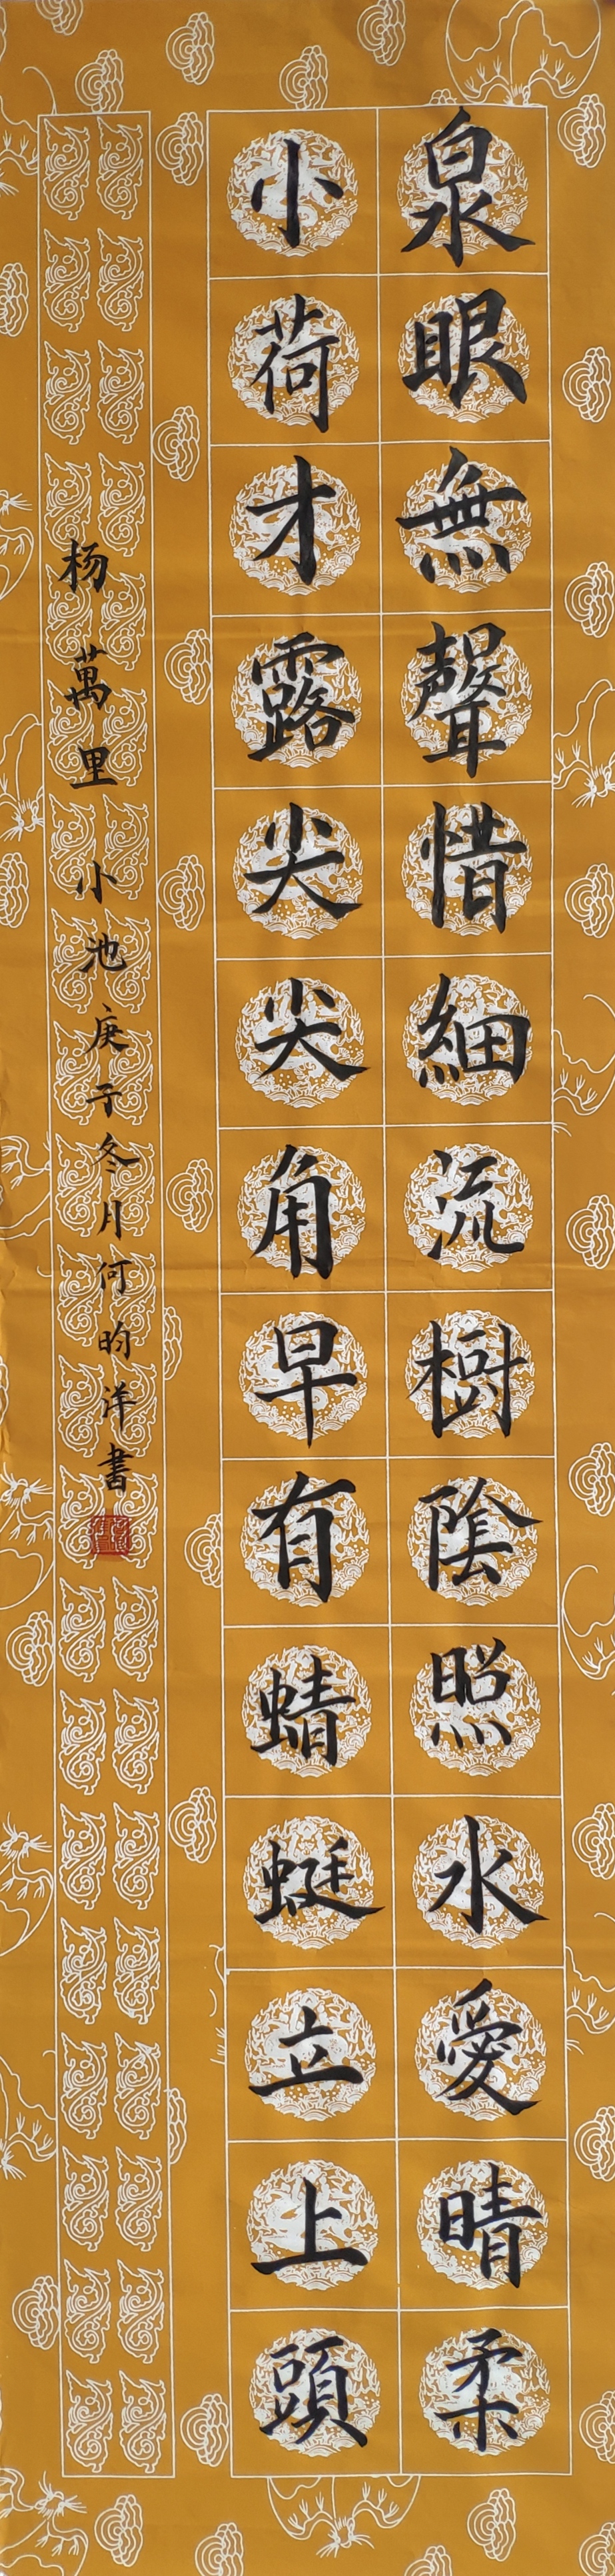 泉眼無聲惜細流樹陰照水愛晴柔
小荷才露尖尖角早有蜻蜓立上頭
杨萬里小池庚子冬月何昀洋書